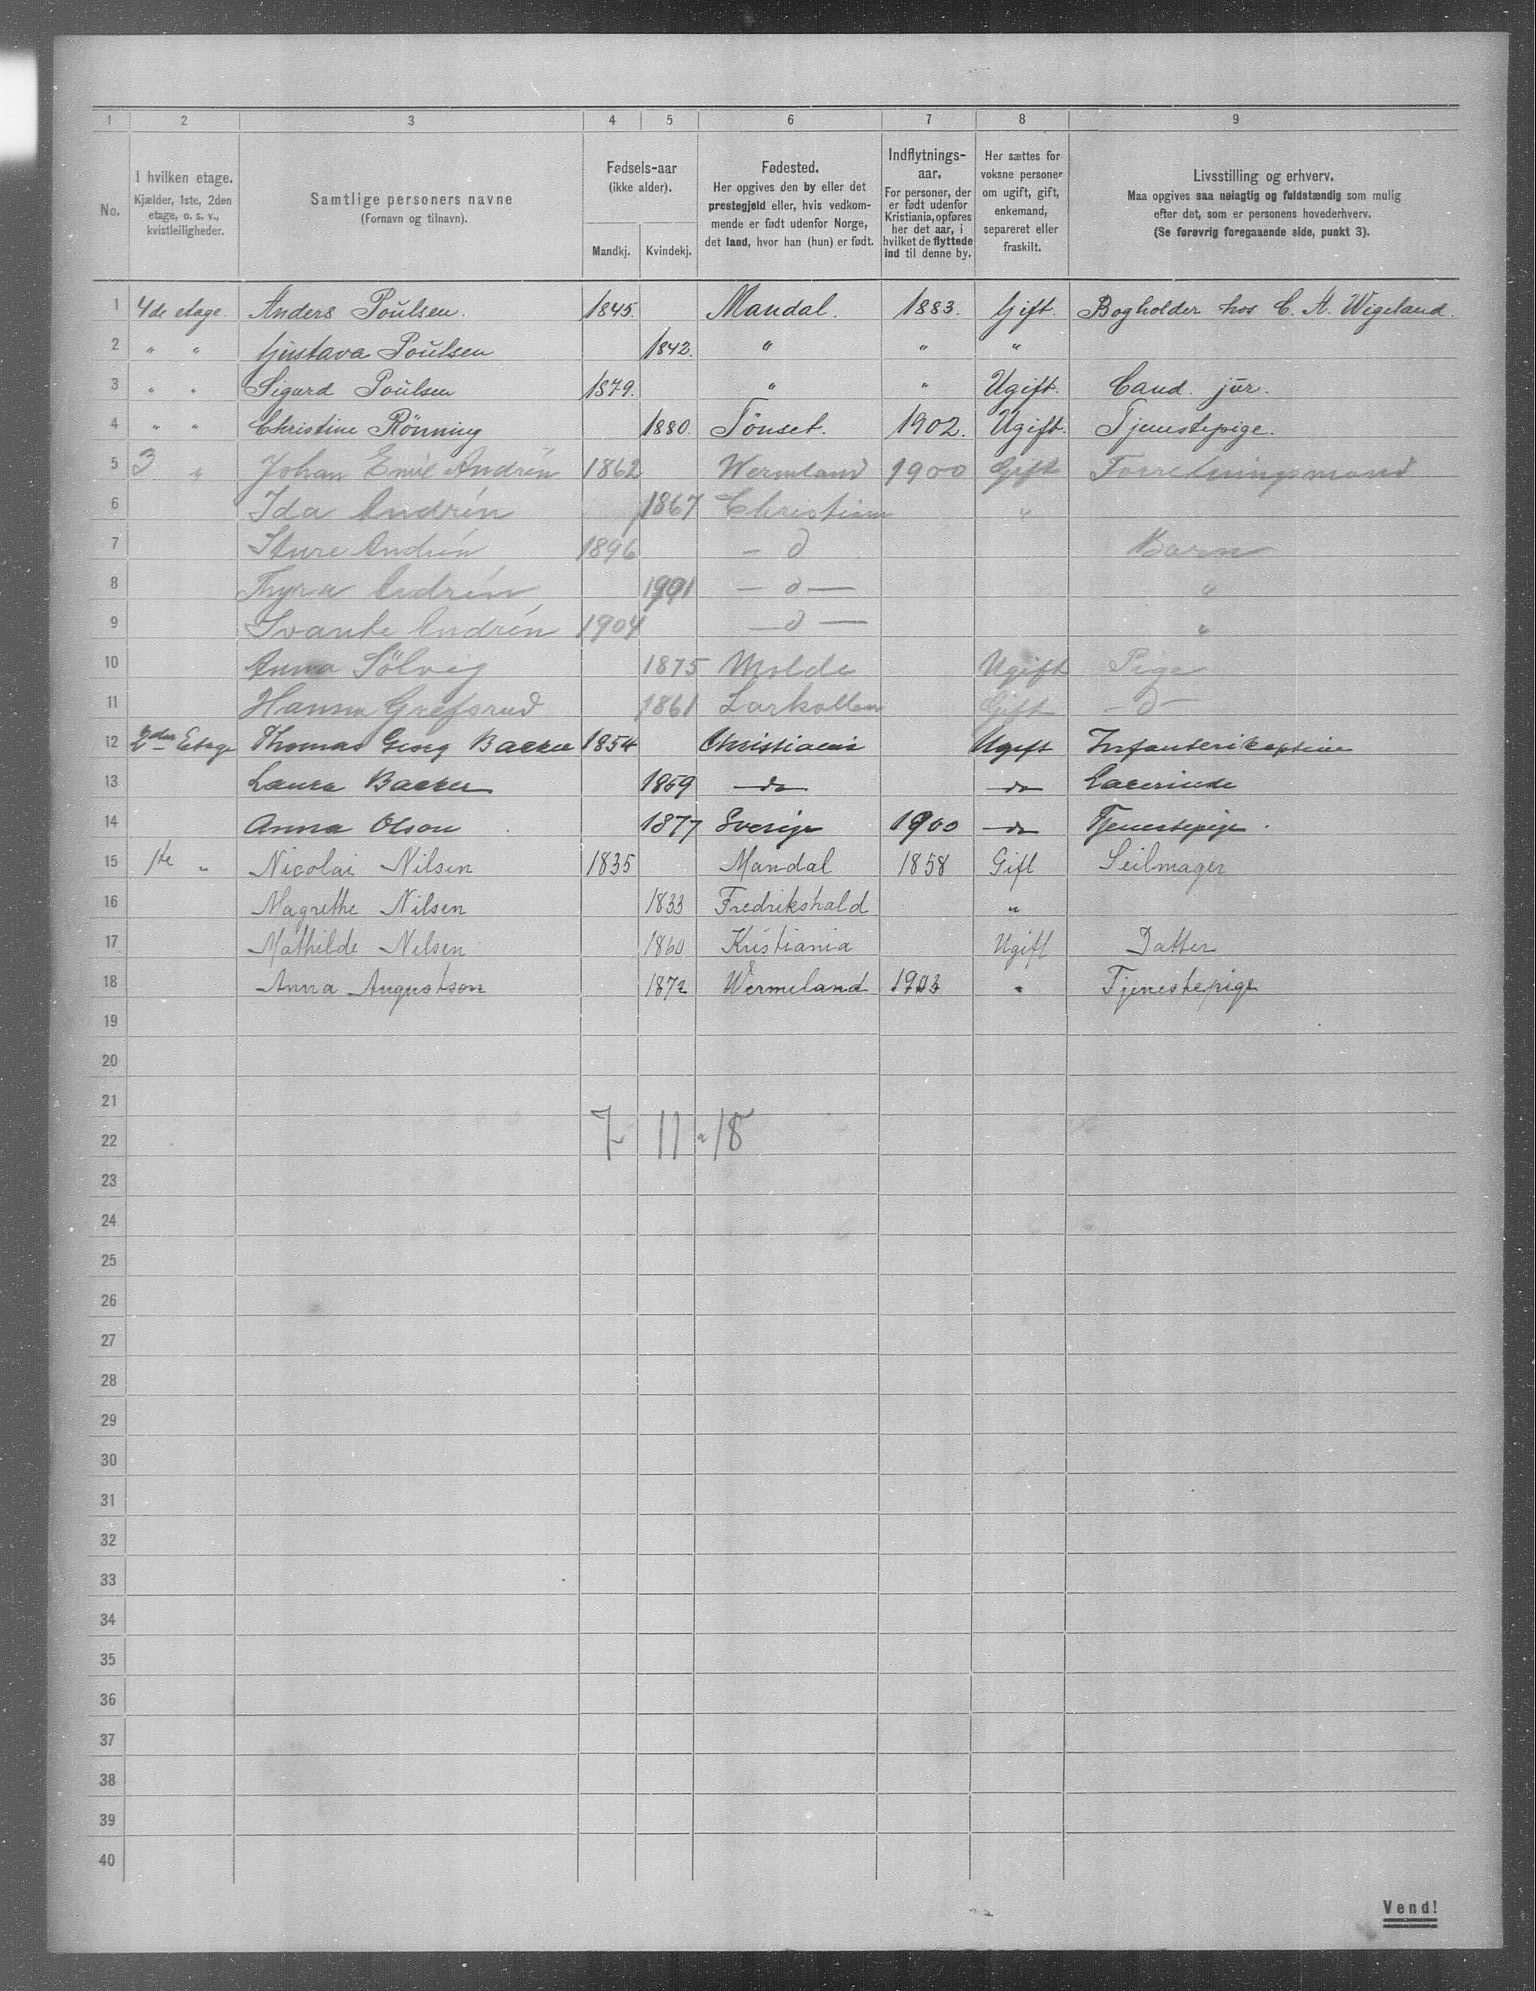 1 2 3 4 5 6 7 8 9
No.
I hvilken etage.
Kjælder, 1ste, 2den
etage, o. s. v.,
kvistleiligheder.
Samtlige personers navne
(Fornavn og tilnavn).
Fødsels-aar
(ikke alder).
Mandkj. Kvindekj.
Fødested.
Her opgives den by eller det
prestegjeld eller, hvis vedkom-
mende er født udenfor Norge,
det land, hvor han (hun) er født.
Indflytnings-
aar.
For personer, der
er født udenfor
Kristiania, opføres
her det aar, i
hvilket de flyttede
ind til denne by.
Her sættes for
voksne personer
om ugift, gift,
enkemand,
separeret eller
fraskilt.
Livsstilling og erhverv.
Maa opgives saa nøiagtig og fuldstændig som mulig
efter det, som er personens hovederhverv.
(Se forøvrig foregaaende side, punkt 3).
1 4de etage. Anders Poulsen. 1845. Mandal. 1883. Gift. Bogholder hos C. A. Wigeland.
2 " " Gustava Poulsen 1842. " " "
3 " " Sigurd Poulsen 1879. " " Ugift. Cand. jur.
4 " " Christine Rönning 1880. Tönset. 1902. Ugift. Tjenestepige.
5 3 " Johan Emil Andrén 1862 Wermland 1900 Gift Forretningsmand
6 Ida Andrén 1867 Christiania "
7 Sture Andrén 1896 - d Barn
8 Thyra Andrén - d - "
9 Svante Andrén 1904 - d - "
10 Anna Sölvig 1875 Molde Ugift Pige
11 Hanna Grefsrud 1861 Larkollen Gift - d -
12 2den Etage Thomas Georg Backer 1854 Christiania Ugift Infanterikaptein
13 Laura Backer 1859 - do - do Lærerinde
14 Anna Olson 1877 Sverige 1900 - do Tjenestepige.
15 1ste " Nicolai Nilsen 1835 Mandal 1858 Gift Seilmager
16 Magrethe Nilsen 1833 Fredrikshald "
17 Mathilde Nilsen 1860 Kristiania Ugift Datter
18 Anna Augustson 1872 Wermeland 1903 " Tjenestepige
19
20
21
22 7 11 = 18
23
24
25
26
27
28
29
30
31
32
33
34
35
36
37
38
39
40
Vend!